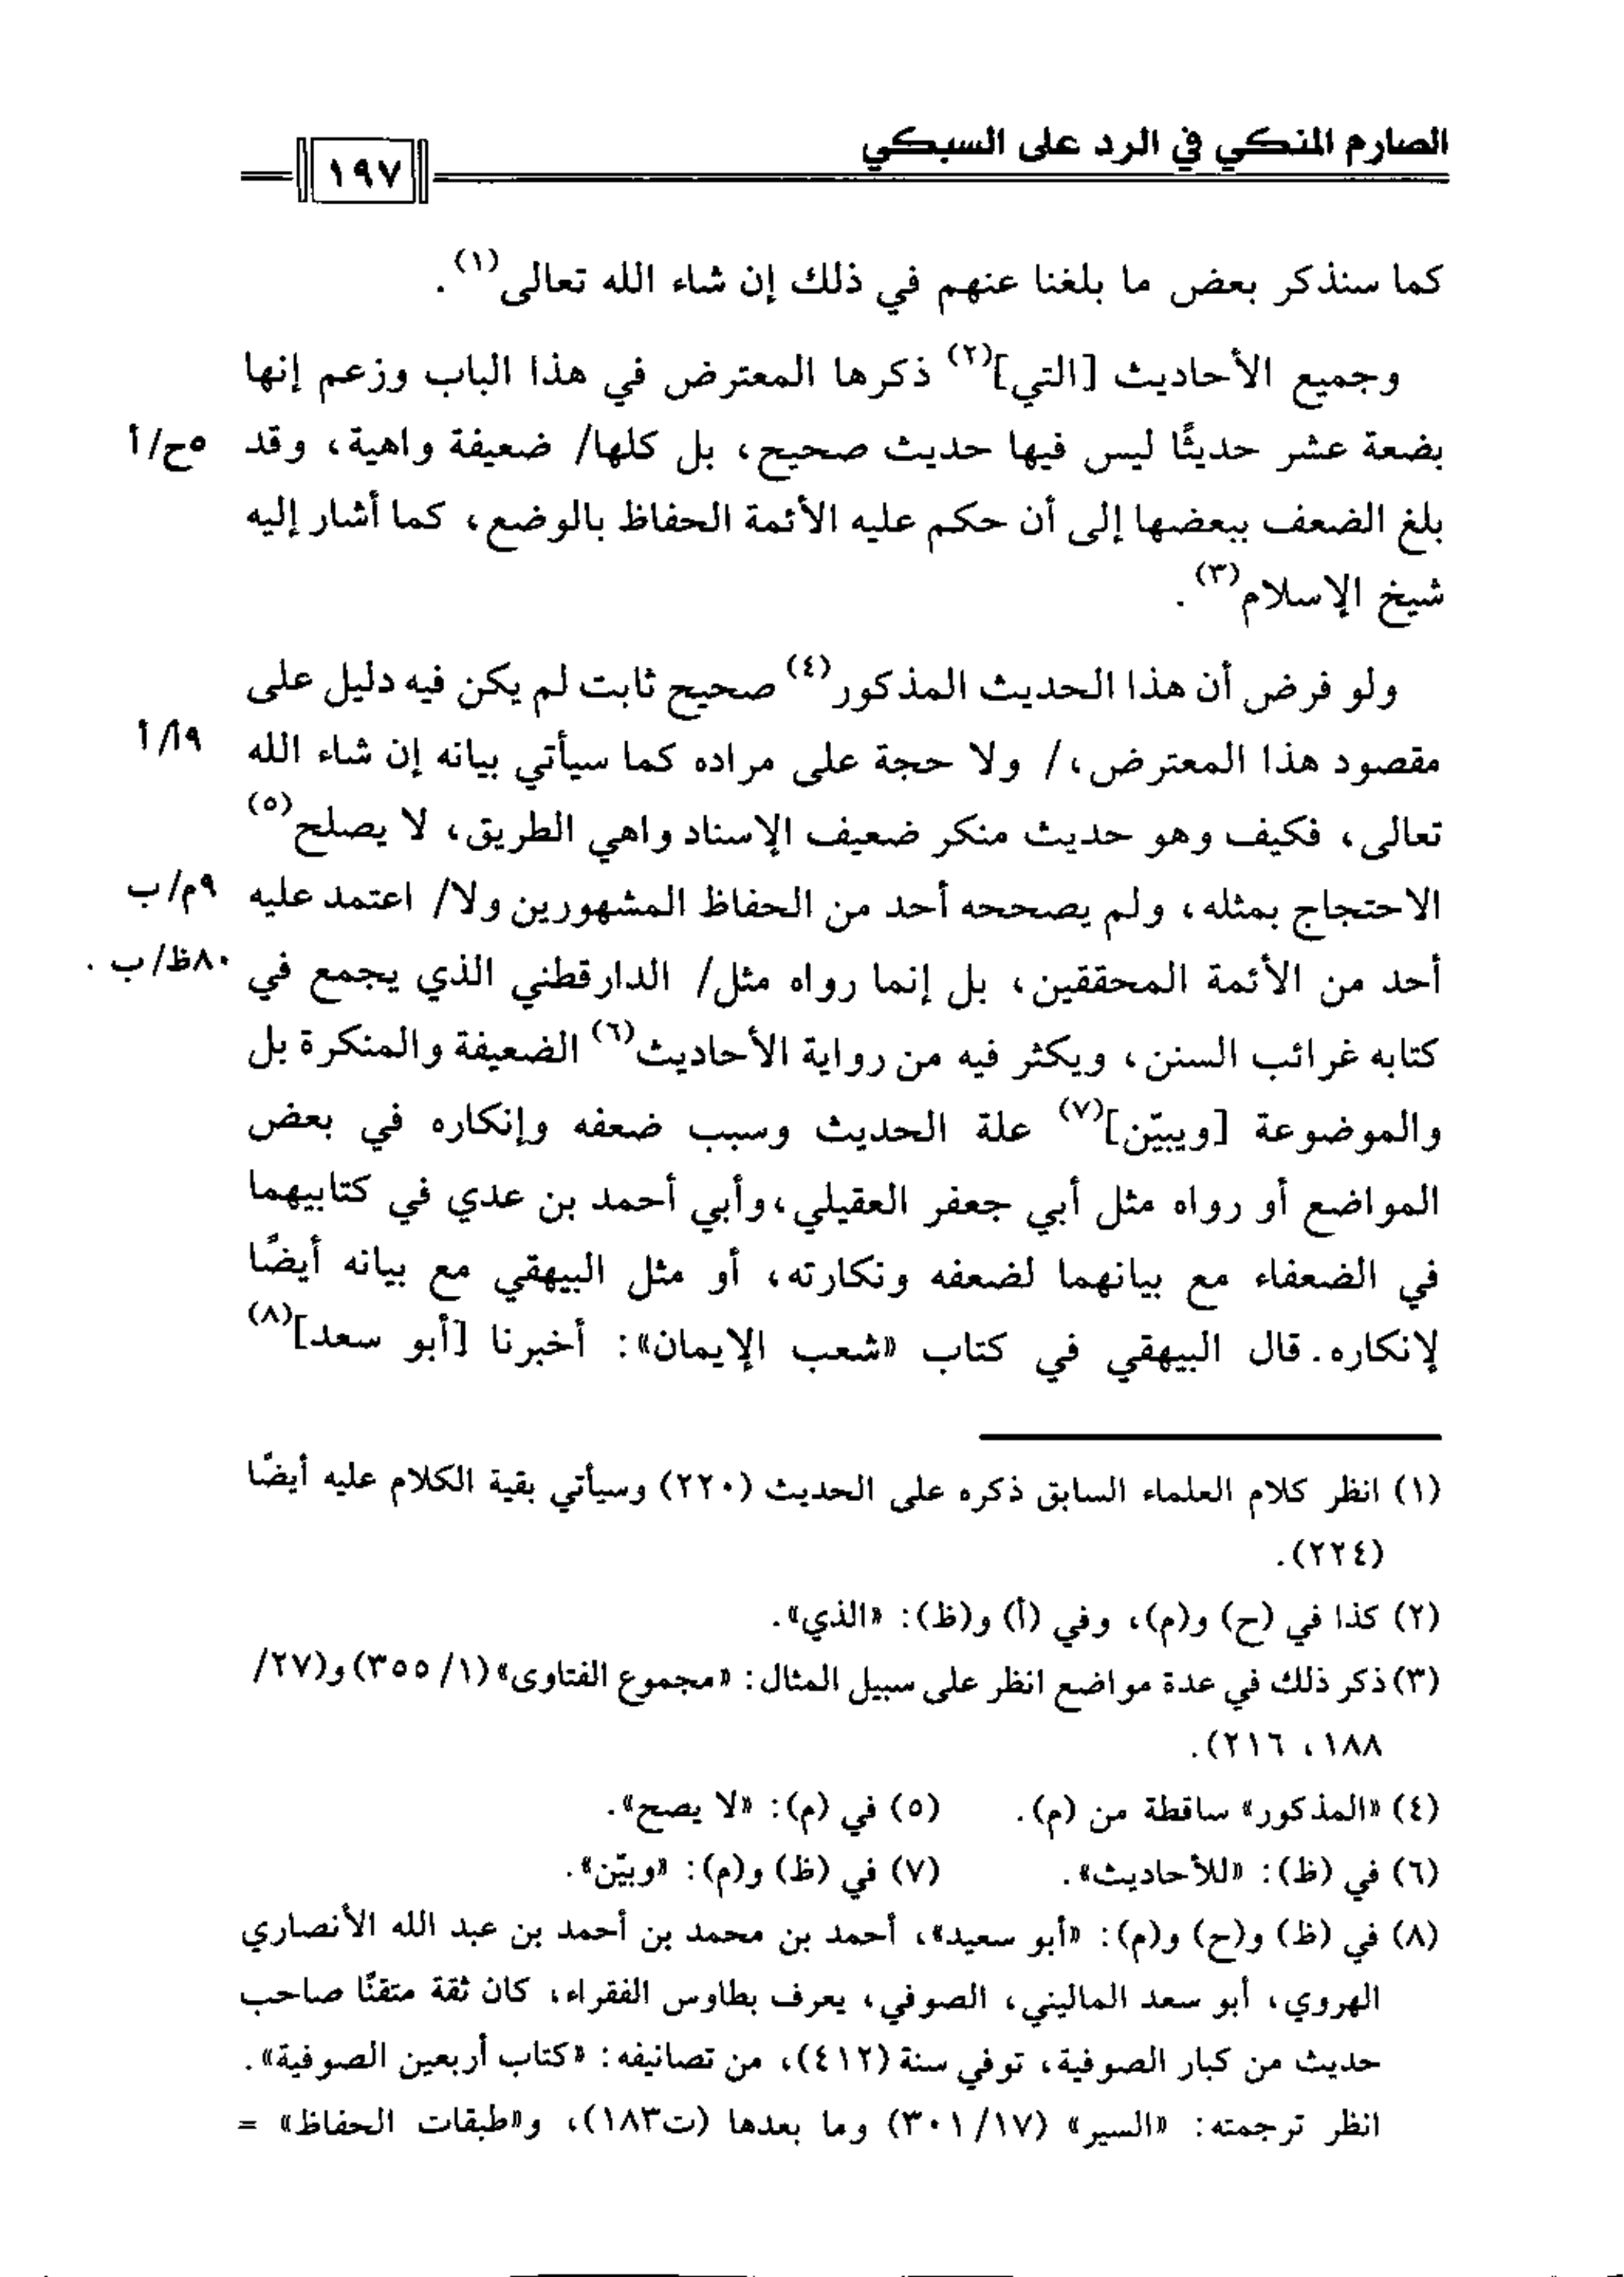 الصارم المنكي في الرد على السبكي
١٩٧
كما سنذكر بعض ما بلغنا عنهم في ذلك إن شاء الله تعالى(١).
وجميع الأحاديث [التي](٢) ذكرها المعترض في هذا الباب وزعم إنها
بضعة عشر حديثًا ليس فيها حديث صحيح، بل كلها/ ضعيفة واهية، وقد ٥ح/أ
بلغ الضعف ببعضها إلى أن حكم عليه الأئمة الحفاظ بالوضع، كما أشار إليه
شيخ الإسلام(٣).
ولو فرض أن هذا الحديث المذكور(٤) صحيح ثابت لم يكن فيه دليل على
مقصود هذا المعترض،/ ولا حجة على مراده كما سيأتي بيانه إن شاء الله ٩أ/أ
تعالى، فكيف وهو حديث منكر ضعيف الإسناد واهي الطريق، لا يصلح(٥)
الاحتجاج بمثله، ولم يصححه أحد من الحفاظ المشهورين ولا/ اعتمد عليه ٩م/ب
أحد من الأئمة المحققين، بل إنما رواه مثل/ الدارقطني الذي يجمع في ٨٠ظ/ب.
كتابه غرائب السنن، ويكثر فيه من رواية الأحاديث(٦) الضعيفة والمنكرة بل
والموضوعة [ويبيّن](٧) علة الحديث وسبب ضعفه وإنكاره في بعض
المواضع أو رواه مثل أبي جعفر العقيلي، وأبي أحمد بن عدي في كتابيهما
في الضعفاء مع بيانهما لضعفه ونكارته، أو مثل البيهقي مع بيانه أيضًا
لإنكاره. قال البيهقي في كتاب «شعب الإيمان»: أخبرنا [أبو سعد](٨)
(١) انظر كلام العلماء السابق ذكره على الحديث (٢٢٠) وسيأتي بقية الكلام عليه أيضًا
(٢٢٤).
(٢) كذا في (ح) و(م)، وفي (أ) و(ظ): «الذي».
(٣) ذكر ذلك في عدة مواضع انظر على سبيل المثال: «مجموع الفتاوى» (١/ ٣٥٥) و(٢٧/
١٨٨، ٢١٦).
(٤) «المذكور» ساقطة من (م). (٥) في (م): «لا يصح».
(٦) في (ظ): «للأحاديث». (٧) في (ظ) و(م): «وبيّن».
(٨) في (ظ) و(ح) و(م): «أبو سعيد»، أحمد بن محمد بن أحمد بن عبد الله الأنصاري
الهروي، أبو سعد الماليني، الصوفي، يعرف بطاوس الفقراء، كان ثقة متقنًا صاحب
حديث من كبار الصوفية، توفي سنة (٤١٢)، من تصانيفه: «كتاب أربعين الصوفية».
انظر ترجمته: «السير» (٣٠١/١٧) وما بعدها (ت١٨٣)، و«طبقات الحفاظ» =